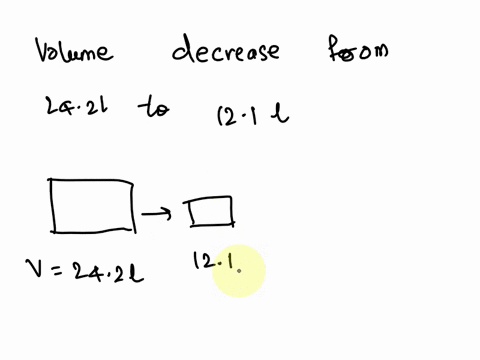 Volume decrease from
24.2l to 12.1 l
V = 24.2l
12.1